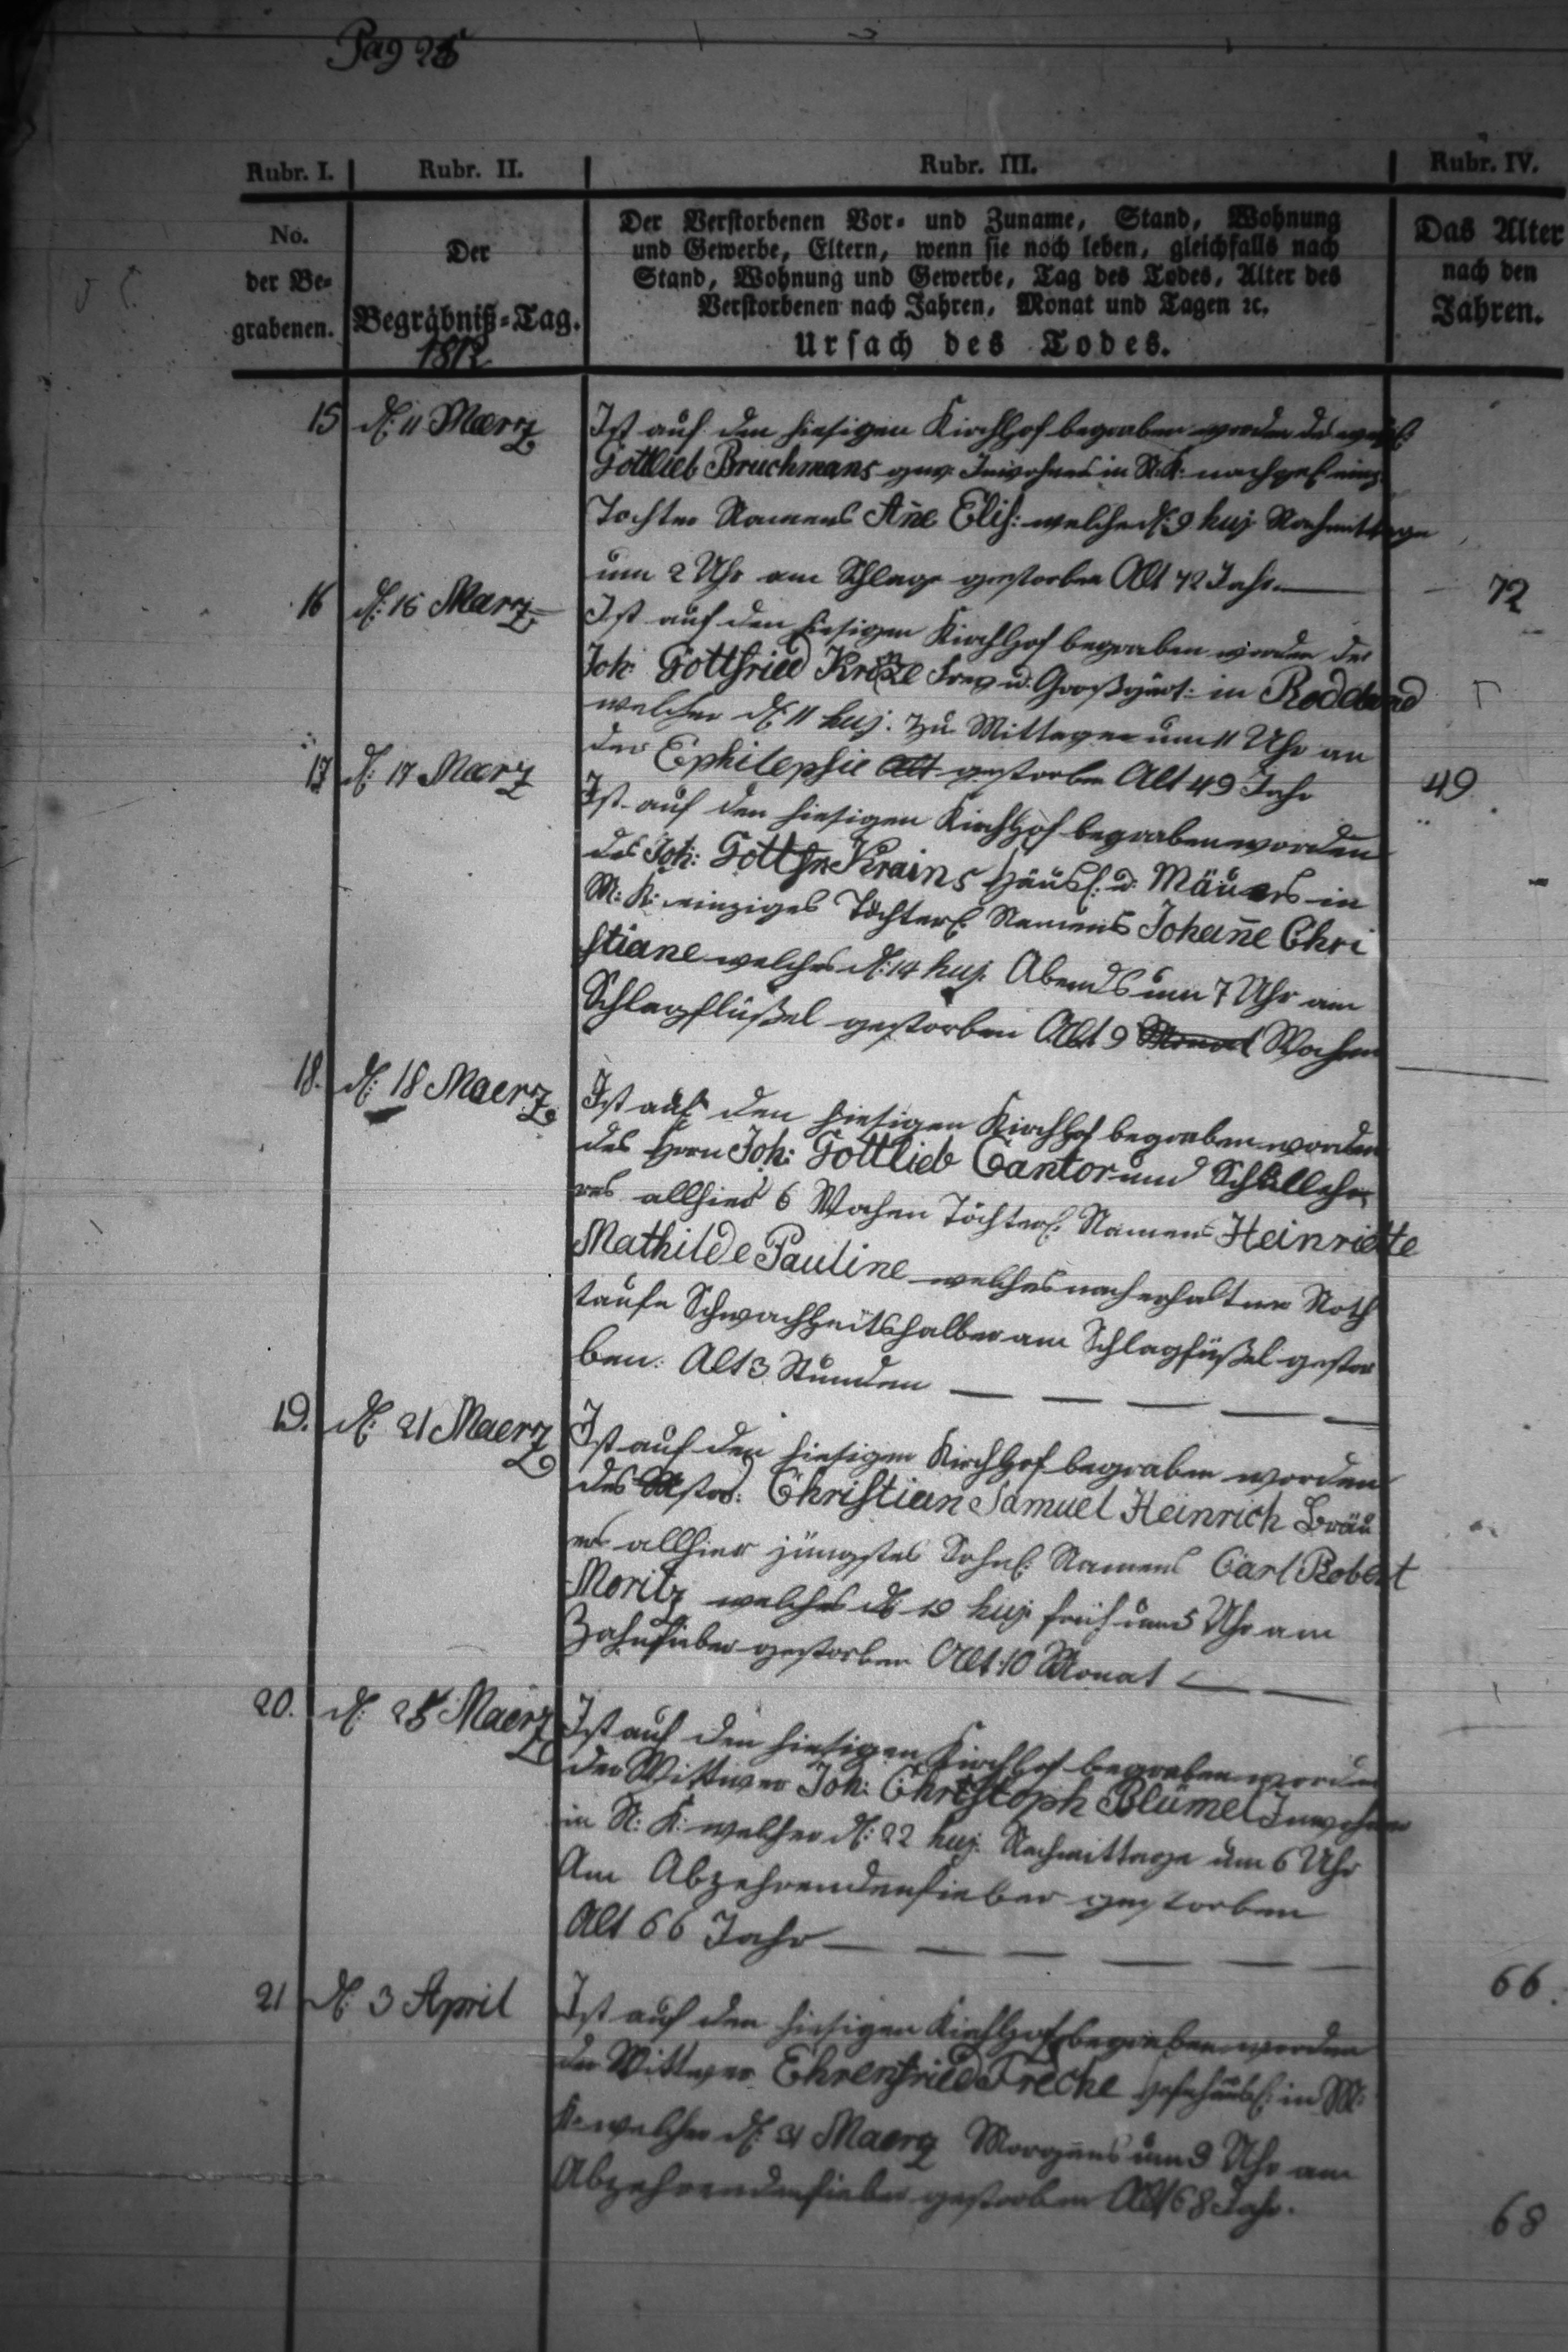 Pag 25
Rubr. I. Rubr. II. Rubr. III. Rubr. IV.
No. der Be- grabenen.
Der Begräbniß-Tag.
1812
Der Verstorbenen Vor- und Zuname, Stand, Wohnung
und Gewerbe, Eltern, wenn sie noch leben, gleichfalls nach
Stand, Wohnung und Gewerbe, Tag des Todes, Alter des
Verstorbenen nach Jahren, Monat und Tagen ꝛc.
Ursach des Todes.
Das Alter
nach den
Jahren.
15 d: 11 Maerz Ist auf den hiesigen Kirchhof begraben worden des weyl:
Gottlieb Bruchmans gew: Inwohners in N: K: nachgel: einz:
Tochter Namens Añe Elis: welche d: 9 huj. Nachmittage
um 2 Uhr am Schlage gestorben Alt 72 Jahr. 72
16 d: 15 Maerz Ist auf den hiesigen Kirchhof begraben worden der
Joh: Gottfried Frey u: Großgärt: in
welcher d: 11 huj. zu Mittage um 11 Uhr an
der Ephilepsie gestorben Alt 49 Jahr 49
17 d: 17 Maerz Ist auf den hiesigen Kirchhof begraben worden
des Joh: Gottfr Krains Häusl: u: Mäurers in
M: K: einziges Töchterl: Namens Johañe Chri
stiane welches d: 14 huj. Abends um 7 Uhr am
Schlagflüßel gestorben Alt 9 Monat Wochen
18. d: 18 Maerz Ist auf den hiesigen Kirchhof begraben worden
des Herrn Joh: Gottlieb Cantor und Schullehr
ers allhier 6 Wochen Töchterl: Namens Heinriette
Mathilde Pauline welches nach erhaltner Noth
taufe Schwachheitshalber am Schlagflüßel gestor
ben. Alt 3 Stunden
19. d: 21 Maerz Ist auf den hiesigen Kirchhof begraben worden
des Mstr: Christian Samuel Heinrich Bräu
ers allhier jüngstes Sohnl: Namens Carl Robert
Moritz welches d: 19 huj. früh um 5 Uhr am
Zahnfieber gestorben Alt 10 Monat
20. d: 25 Maerz Ist auf den hiesigen Kirchhof begraben worden
der Wittwer Joh: Christoph Blümel Inwohner
in N: K: welcher d: 22 huj. Nachmittage um 6 Uhr
Am Abzehrendenfieber gestorben
Alt 66 Jahr 66.
21 d: 3 April Ist auf den hiesigen Kirchhof begraben worden
der Wittwer Ehrenfried Freche Hofehäusl: in M:
K: welcher d: 31 Maerz Morgens um 9 Uhr am
Abzehrendenfieber gestorben Alt 68 Jahr. 68